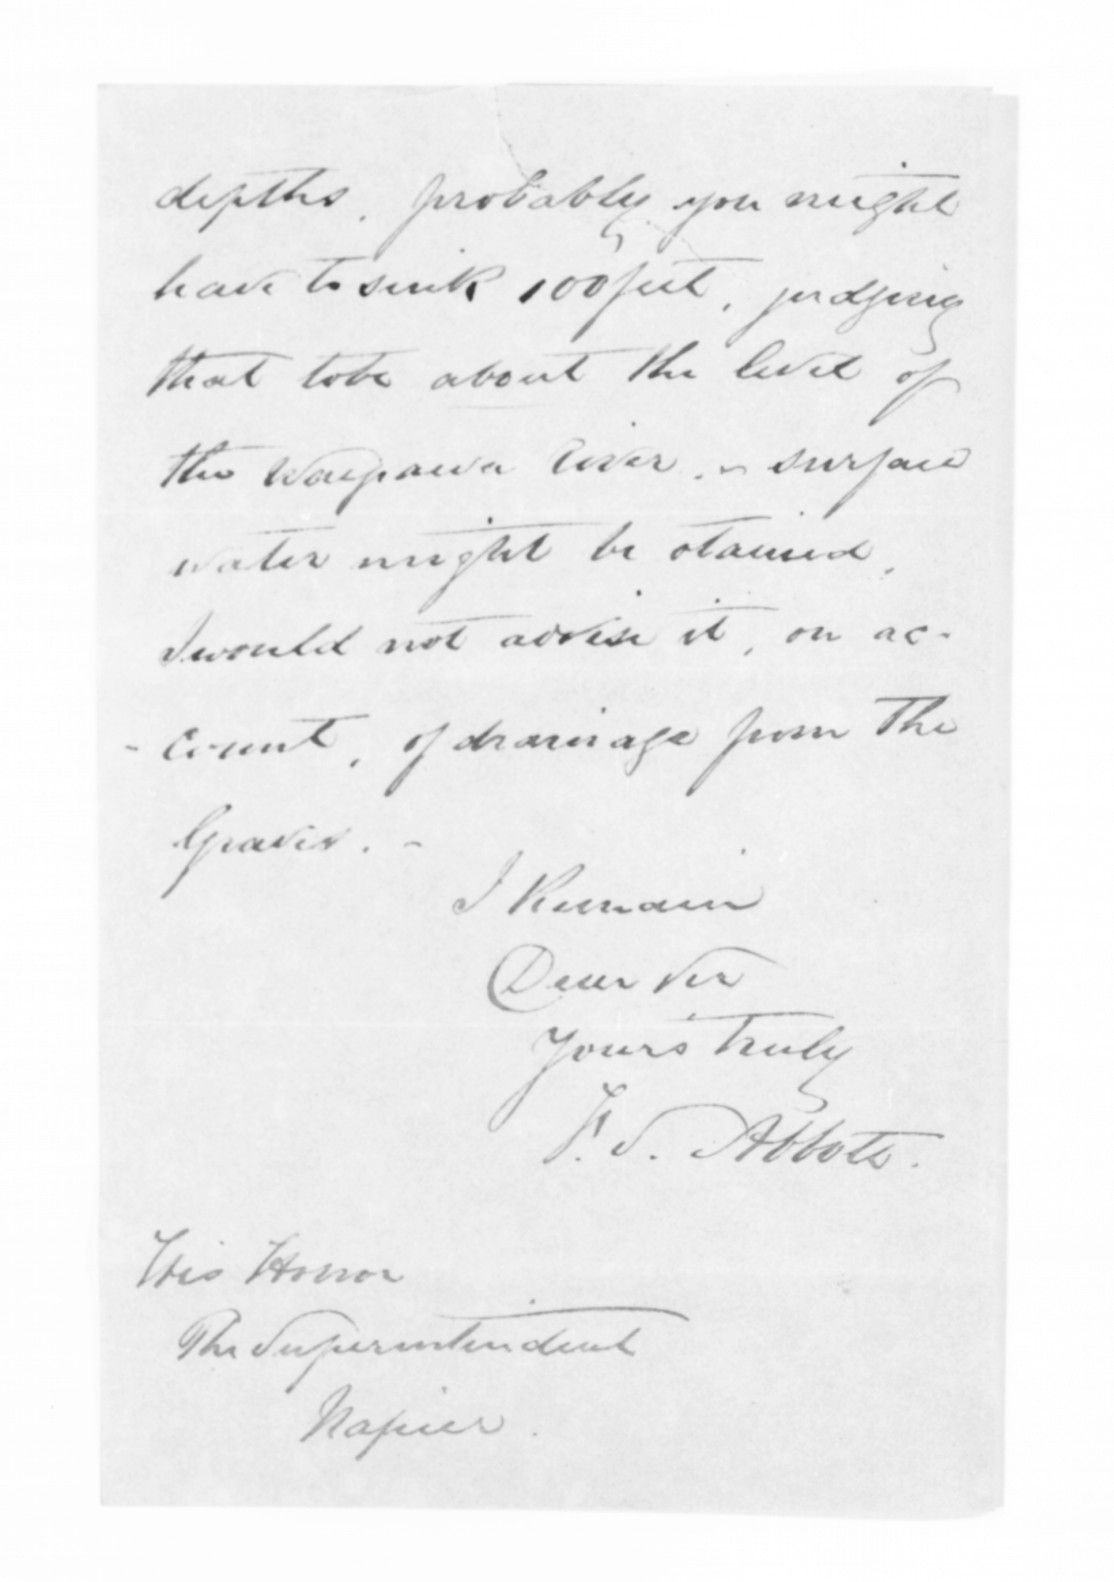 depths. probably you might
have to sink 100 feet, judging
that tobe about the level of
the Waipawa River. - surface
water might be otained,
I would not advise it, on ac-
- count, of drainage from the
Graves. -
I Remain
Dear Sir
Yours truly
F. S. Abbott.
His Honor
The Superintendent
Napier.